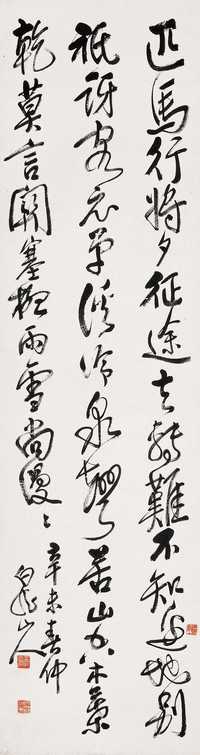 匹馬行將夕征途去轉難不知邊地別
祇訝客衣單溪冷泉聲苦山空木葉
乾莫言關塞極雨雪尚漫〻
辛未春仲
山人